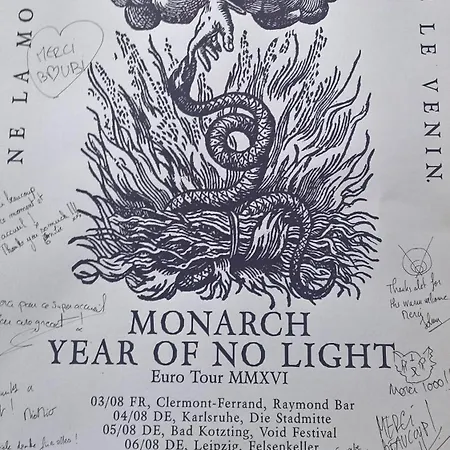 NE LA MO
LE VENIN.
MERCI
BOUBI
beaucoup
moment
accueil !
Thank you
Merci pour ce super accueil
Thanks a lot for
this warm welcome
Merci
MONARCH
YEAR OF NO LIGHT
Euro Tour MMXVI
03/08 FR, Clermont-Ferrand, Raymond Bar
04/08 DE, Karlsruhe, Die Stadmitte
05/08 DE, Bad Kotzting, Void Festival
06/08 DE, Leipzig, Felsenkeller
Merci Tooo!!
MERCI
BEAUCOUP!